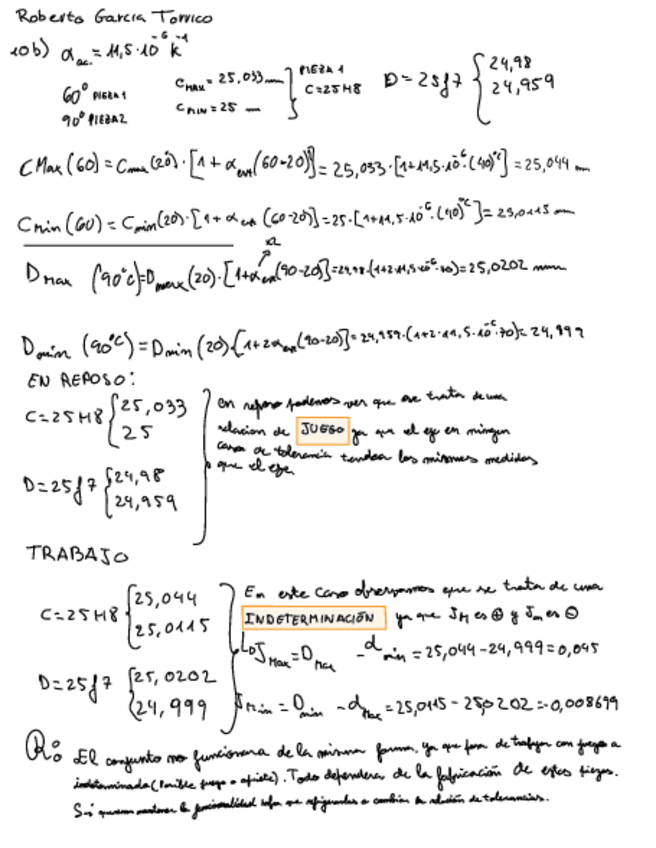 Roberto Garcia Torrico
10b) α ac. = 11,5·10⁻⁶ K⁻¹
60° PIEZA 1
90° PIEZA 2
CMAX = 25,033 mm
CMIN = 25 mm
PIEZA 1
C=25H8
D=25f7 { 24,98
24,959
CMax(60) = Cmax(20)·[1+α ext(60-20)] = 25,033·[1+11,5·10⁻⁶·(40)°C] = 25,044 mm
Cmin(60) = Cmin(20)·[1+α ext (60-20)] = 25·[1+11,5·10⁻⁶·(40)°C] = 25,0115 mm
x2
DMax (90°C) = Dmax(20)·[1+α ext(90-20)] = 24,98·(1+2·11,5·10⁻⁶·70) = 25,0202 mm
Dmin (90°C) = Dmin(20)·[1+2α ext(90-20)] = 24,959·(1+2·11,5·10⁻⁶·70) = 24,999
EN REPOSO:
C=25H8 { 25,033
25
D=25f7 { 24,98
24,959
en reposo podemos ver que se trata de una
relacion de JUEGO ya que el eje en ningun
caso de tolerancia tendra las mismas medidas
que el eje.
TRABAJO
C=25H8 { 25,044
25,0115
D=25f7 { 25,0202
24,999
En este caso observamos que se trata de una
INDETERMINACIÓN ya que JM es ⊕ y Jm es ⊖
JMax = DMax - dmin = 25,044-24,999 = 0,045
JMin = Dmin - dMax = 25,0115-25,0202 = -0,008699
R: El conjunto no funcionara de la misma forma, ya que pasa de trabajar con juego a
indeterminada (Posible juego o apriete). Todo dependera de la fabricación de estas piezas.
Si queremos mantener la funcionalidad que refrigerarlas o cambiar la relación de tolerancias.